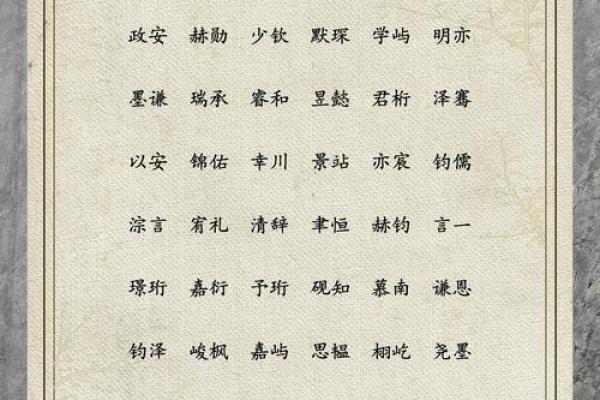 政安 赫勋 少钦 默琛 学屿 明亦
墨谦 瑞承 睿和 昱懿 君桁 泽骞
以安 锦佑 幸川 景站 亦宸 钧儒
淙言 宥礼 清辞 聿恒 赫钧 言一
璟珩 嘉衍 予珩 砚知 慕南 谦恩
钧泽 峻枫 嘉屿 思韫 栩屹 尧墨